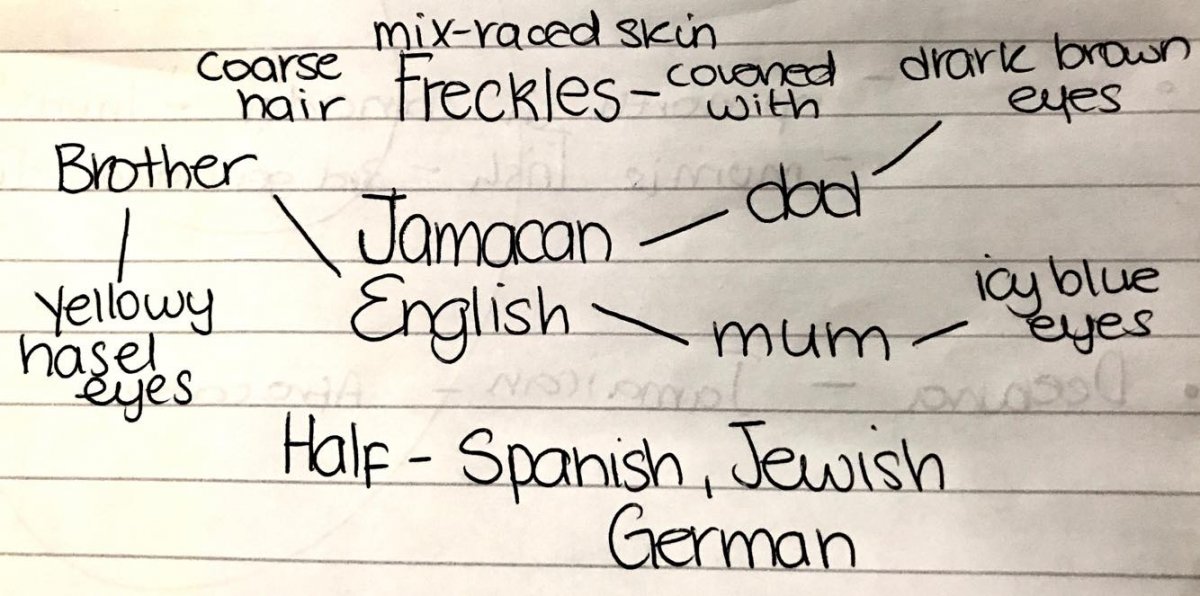 mix-raced skin
coarse hair
Freckles - covered with
drark brown eyes
Brother
dad
Jamacan
English
yellowy hasel eyes
mum
icy blue eyes
Half - Spanish, Jewish
German